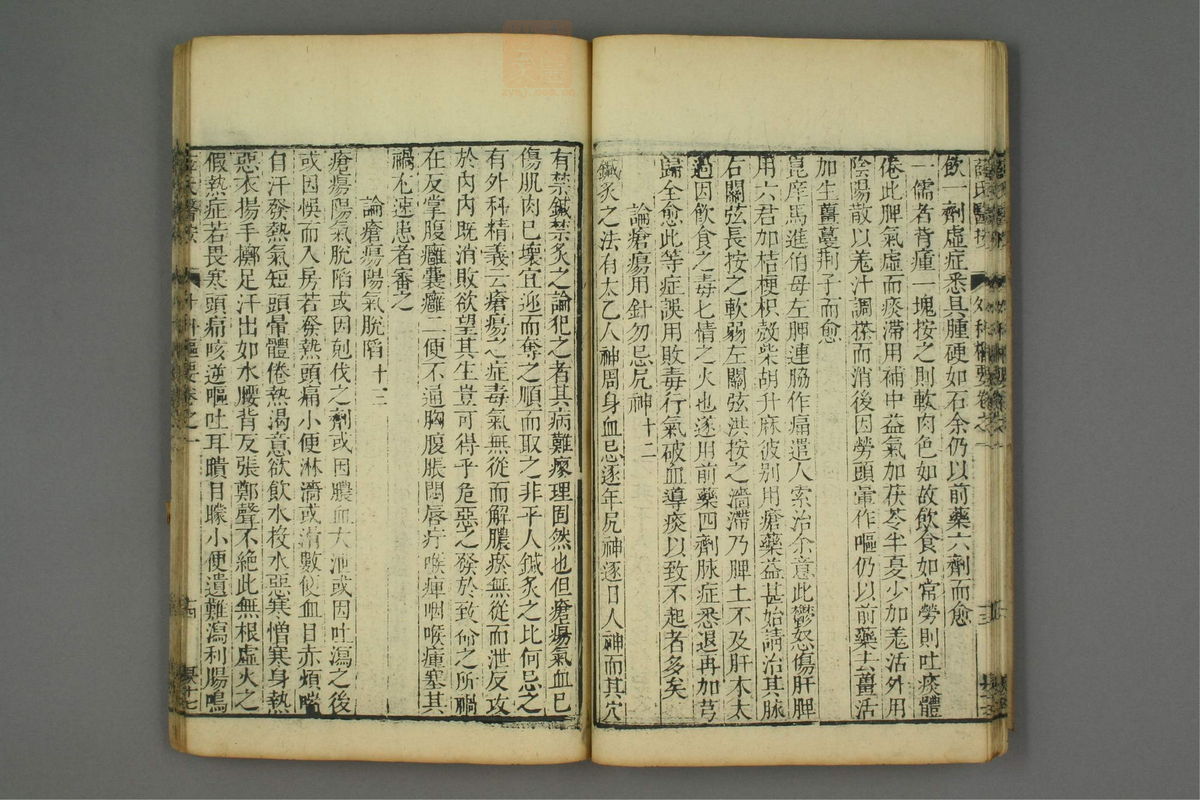 飲一劑虛症悉具腫硬如石余仍以前藥六劑而愈
一儒者背瘇一塊按之則軟肉色如故飲食如常勞則吐痰體
倦此脾氣虛而痰滯用補中益氣加茯苓半夏少加羗活外用
陰陽散以羗汁調搽而消後因勞頭暈作嘔仍以前藥土薑活
加生薑蔓荆子而愈
崑庠馬進伯母左胛連脇作痛遣人索治余意此鬱怒傷肝脾
用六君加桔梗枳殼柴胡升麻彼别用瘡藥益甚始請治其脉
右關弦長按之軟弱左關弦洪按之濇滯乃脾土不及肝木太
過因飲食之毒七情之火也遂用前藥四劑脉症悉退再加芎
歸全愈此等症誤用敗毒行氣破血導痰以致不起者多矣
論瘡瘍用針勿忌尻神十二
鍼炙之法有太乙人神周身血忌逐年尻神逐日人神而其穴
有禁鍼禁炙之論犯之者其病難瘳理固然也但瘡瘍氣血已
傷肌肉已壞宜迎而奪之順而取之非平人鍼炙之比何忌之
有外科精義云瘡瘍之症毒氣無從而解膿瘀無從而泄反攻
於内内既消敗欲望其生豈可得乎危惡之發於致命之所禍
在反掌腹癰囊癰二便不通胸腹脹悶唇疔喉痺咽喉瘇塞其
禍尤速患者審之
論瘡瘍陽氣脫陷十三
瘡瘍陽氣脫陷或因尅伐之劑或因膿血大泄或因吐瀉之後
或因悞而入房若發熱頭痛小便淋濇或滑數便血目赤煩喘
自汗發熱氣短頭暈體倦熱渴意欲飲水投水惡寒憎寒身熱
惡衣揚手擲足汗出如水腰背反張鄭聲不絶此無根虛火之
假熱症若畏寒頭痛咳逆嘔吐耳聵目矇小便遺難瀉利腸鳴
薛氏醫按
外科樞要卷之一
十四